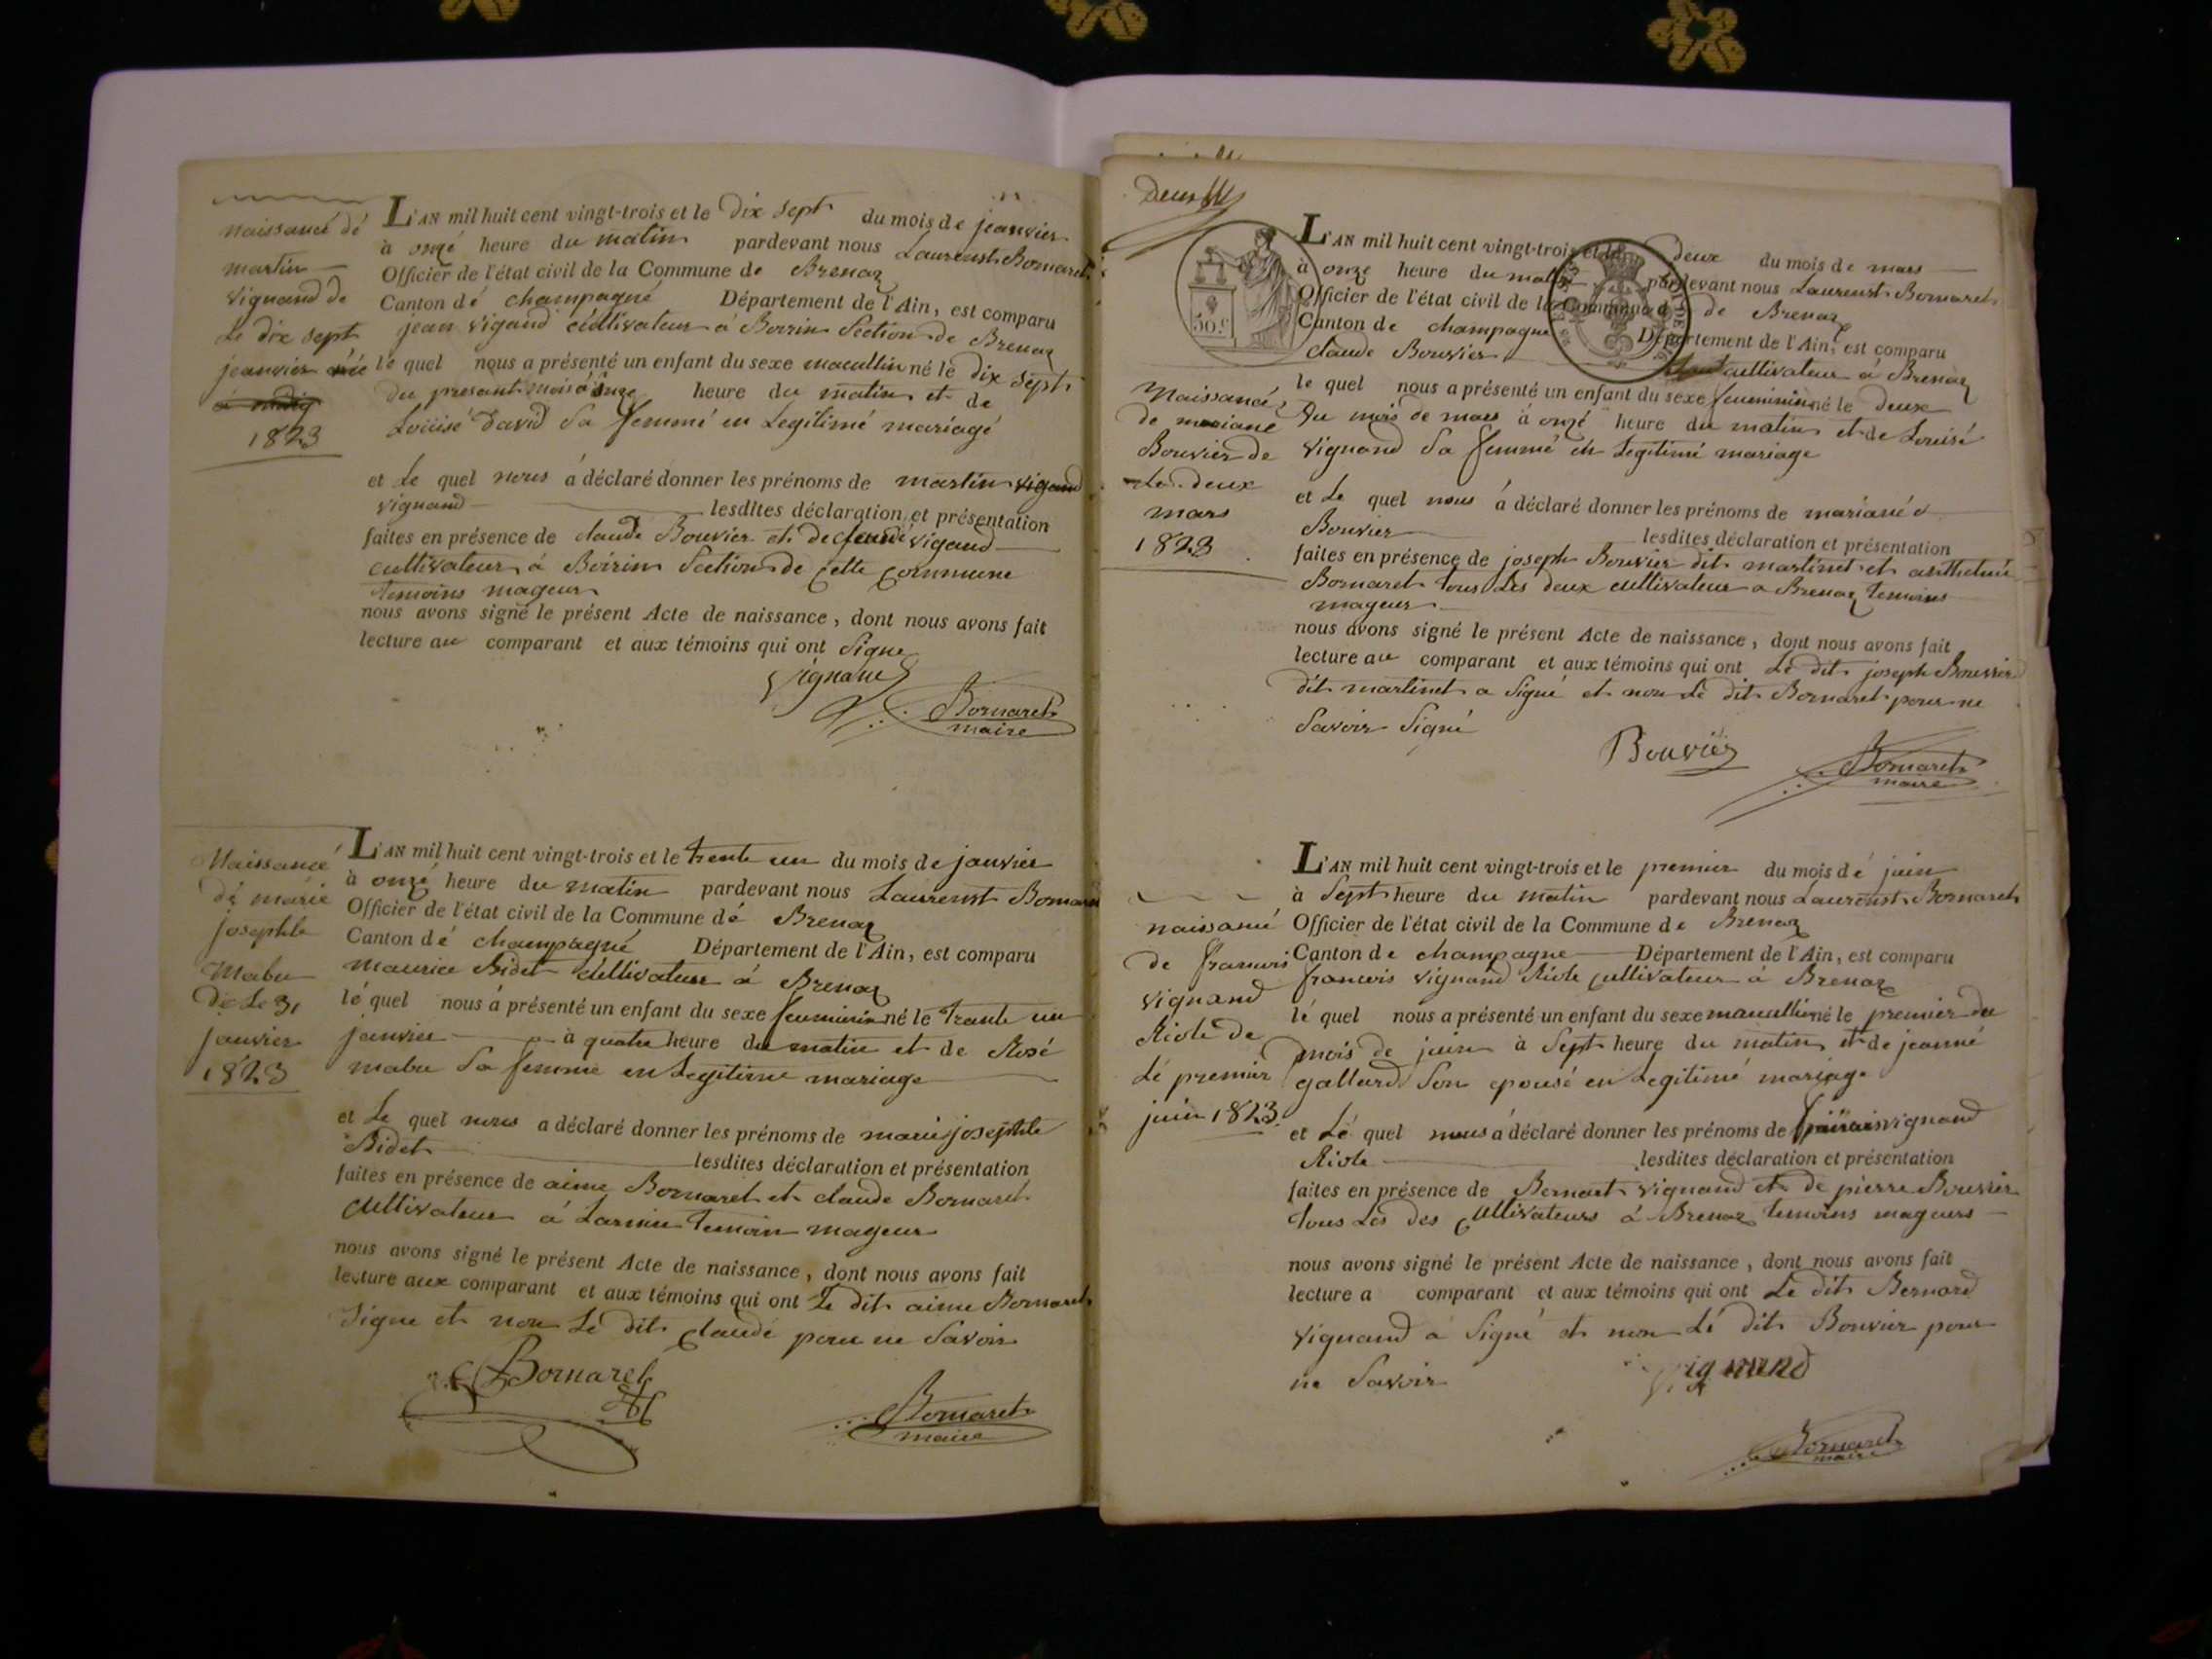 naissance de
martin
vignand de
Le dix sept
janvier
1823
L'AN mil huit cent vingt-trois et le dix sept du mois de jeanvier
à onze heure du matin pardevant nous Laurenst Bornaret
Officier de l'état civil de la Commune de Brenaz
Canton de champagne Département de l'Ain, est comparu
jean vigand cultivateur à Boirin Section de Brenaz
le quel nous a présenté un enfant du sexe macullin né le dix sept
du present mois à onze heure du matin et de
Louise david Sa femme en Legitime mariage
et Le quel nous a déclaré donner les prénoms de martin vigand
vignand lesdites déclaration et présentation
faites en présence de claude Bouvier et de vigand
cultivateur à Boirin Section de Cette Commune
temoins mageur
nous avons signé le présent Acte de naissance, dont nous avons fait
lecture au comparant et aux témoins qui ont Signe
Vignand
Bornaret
maire
Naissance
de marie
josephte
Mabu
de Le 31
janvier
1823
L'AN mil huit cent vingt-trois et le trente un du mois de janvier
à onze heure du matin pardevant nous Laurenst Bornaret
Officier de l'état civil de la Commune de Brenaz
Canton de champagne Département de l'Ain, est comparu
maurice Bidet cultivateur à Brenaz
le quel nous a présenté un enfant du sexe feminin né le Trante un
janvier à quatre heure du matin et de Rosé
mabu Sa femme en Legitime mariage
et Le quel nous a déclaré donner les prénoms de marie josephte
Bidet lesdites déclaration et présentation
faites en présence de aime Bornaret et claude Bornaret
Cultivateur à Temoin mageur
nous avons signé le présent Acte de naissance, dont nous avons fait
lecture aux comparant et aux témoins qui ont Le dit aime Bornaret
Signe et non Le dit Claude pour ne Savoir
Bornaret
Bornaret
maire
Deux
50 c
L'AN mil huit cent vingt-trois et le deux du mois de mars
à onze heure du matin pardevant nous Laurenst Bornaret
Officier de l'état civil de la Commune de Brenaz
Canton de champagne Département de l'Ain, est comparu
claude Bouvier cultivateur à Brenaz
Naissance
de mariane
Bouvier de
Le deux
mars
1823
le quel nous a présenté un enfant du sexe feminin né le deux
Du mois de mars à onze heure du matin et de Louise
vignand Sa femme en Legitime mariage
et Le quel nous a déclaré donner les prénoms de mariane
Bouvier lesdites déclaration et présentation
faites en présence de joseph Bouvier dit martinet et anthelme
Bornaret tous Les deux cultivateur a Brenaz temoins
mageur
nous avons signé le présent Acte de naissance, dont nous avons fait
lecture au comparant et aux témoins qui ont Le dit joseph Bouvier
dit martinet a Signé et non Le dit Bornaret pour ne
Savoir Signé
Bouvier
Bornaret
maire
naissance
de francois
vignand
Riole de
Le premier
juin 1823
L'AN mil huit cent vingt-trois et le premier du mois de juin
à Sept heure du matin pardevant nous Laurenst Bornaret
Officier de l'état civil de la Commune de Brenaz
Canton de champagne Département de l'Ain, est comparu
francois vignand Riole cultivateur à Brenaz
le quel nous a présenté un enfant du sexe macullin né le premier du
mois de juin à Sept heure du matin et de jeanne
gallard Son epouse en Legitime mariage
et Le quel nous a déclaré donner les prénoms de francois vignand
Riole lesdites déclaration et présentation
faites en présence de Bernart vignand et de pierre Bouvier
tous Les des Cultivateurs à Brenaz temoins mageurs
nous avons signé le présent Acte de naissance, dont nous avons fait
lecture a comparant et aux témoins qui ont Le dit Bernard
vignand a Signé et non Le dit Bouvier pour
ne Savoir
Vignand
Bornaret
maire